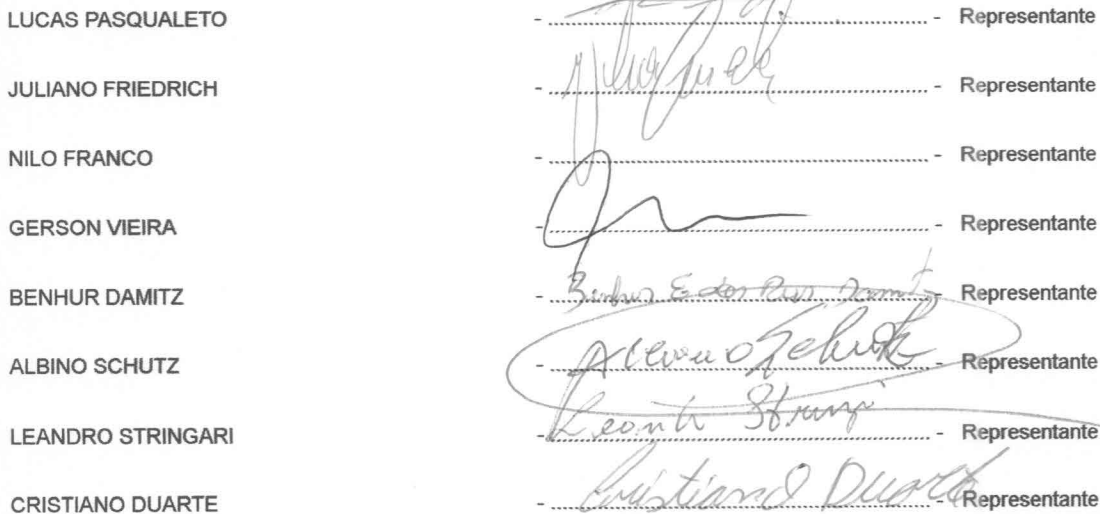 LUCAS PASQUALETO - ........................ - Representante
JULIANO FRIEDRICH - ........................ - Representante
NILO FRANCO - ........................ - Representante
GERSON VIEIRA - ........................ - Representante
BENHUR DAMITZ - Benhur E dos Damitz - Representante
ALBINO SCHUTZ - Schutz - Representante
LEANDRO STRINGARI - ........................ - Representante
CRISTIANO DUARTE - Cristiano Duarte - Representante